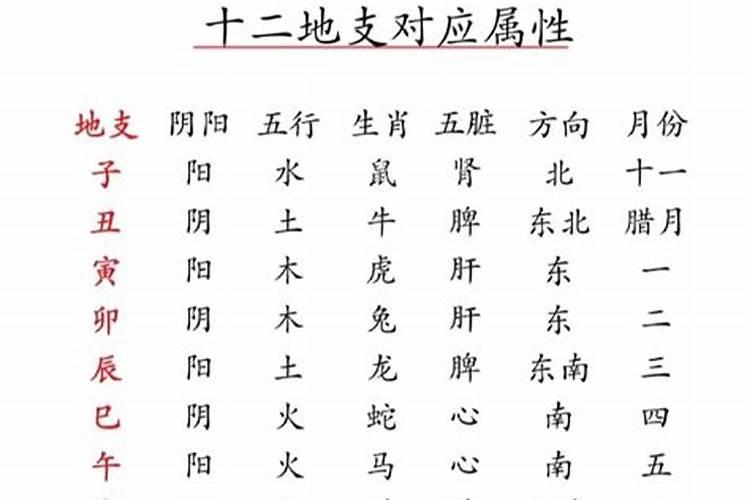 十二地支对应属性
地支 阴阳 五行 生肖 五脏 方向 月份
子 阳 水 鼠 肾 北 十一
丑 阴 土 牛 脾 东北 腊月
寅 阳 木 虎 肝 东 一
卯 阴 木 兔 肝 东 二
辰 阳 土 龙 脾 东南 三
巳 阴 火 蛇 心 南 四
午 阳 火 马 心 南 五